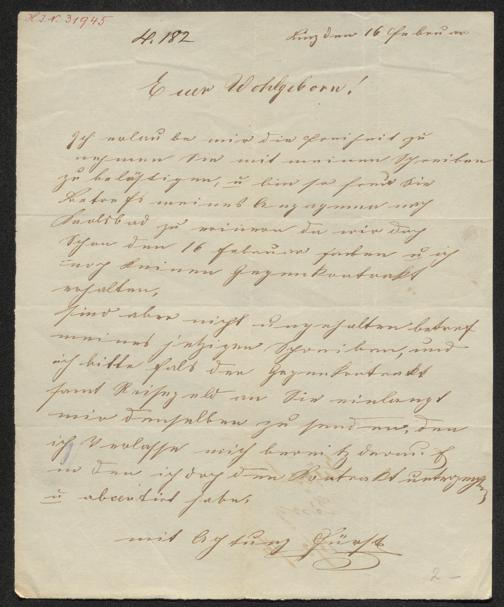 H.I.N. 31945
N. 182
Linz den 16 Februar
Euer Wohlgeborn!
Ich erlaube mir die Freiheit zu
nehmen Sie mit meinen Schreiben
zu belästigen, u bin so frei Sie
Betrefs meines Angagmen nach
Karlsbad zu erinern da wir doch
Schon den 16 Februar haben u ich
noch keinen Gegenkontrakt
erhalten,
Sind aber nicht ungehalten betref
meines jetzigen Schreiben, und
ich bitte falls der Gegenkontrakt
samt Reisegeld an Sie einlangt
mir denselben zu senden, den
ich Verlasse mich bereits darauf
in den ich doch den Kontrakt unterzeichnet
u abcertirt habe.
mit Achtung Fürst
2 –